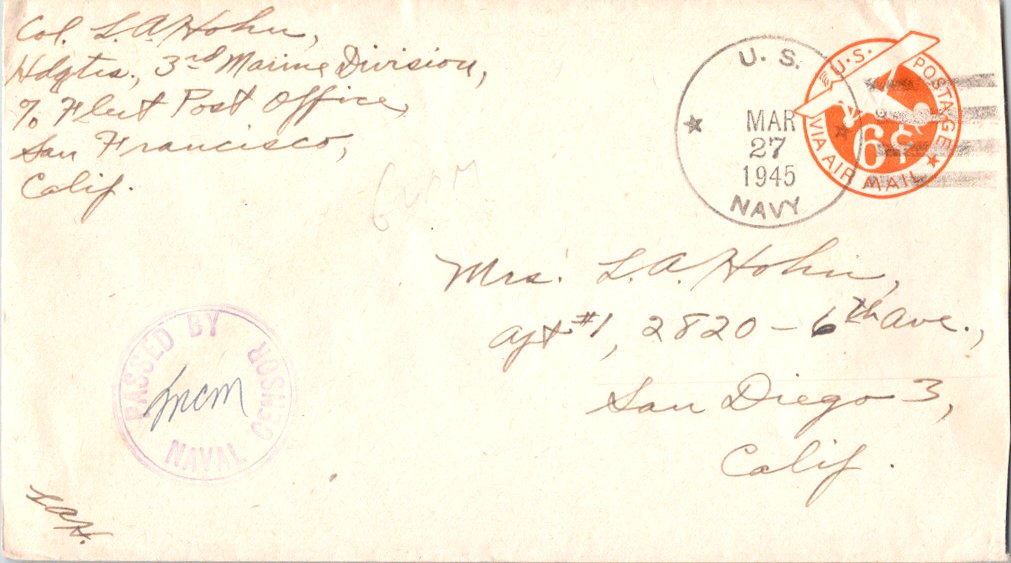 Col. L.A. Hohn,
Hdqtrs., 3rd Marine Division,
% Fleet Post Office,
San Francisco,
Calif.
U.S.
MAR
27
1945
NAVY
U.S. POSTAGE
6¢
VIA AIR MAIL
Guam
Mrs. L.A. Hohn,
apt #1, 2820 - 6th ave.,
San Diego 3,
Calif.
PASSED BY
NAVAL CENSOR
LAH.